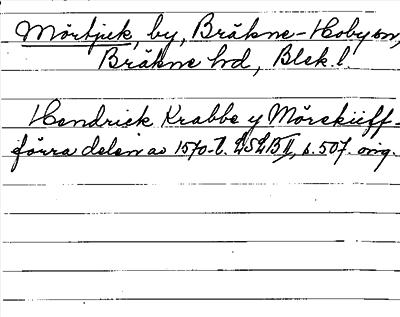 Mörtjuk, by, Bräkne-Hoby sn,
Bräkne hd, Blek. l.
Hendrick Krabbe y Mörckiüff-
förra delen av 1570-t. LSLB II, s. 507. orig.